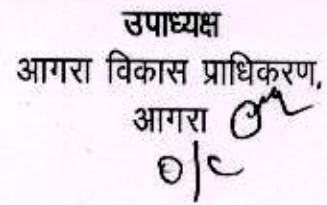 उपाध्यक्ष
आगरा विकास प्राधिकरण,
आगरा
O|C